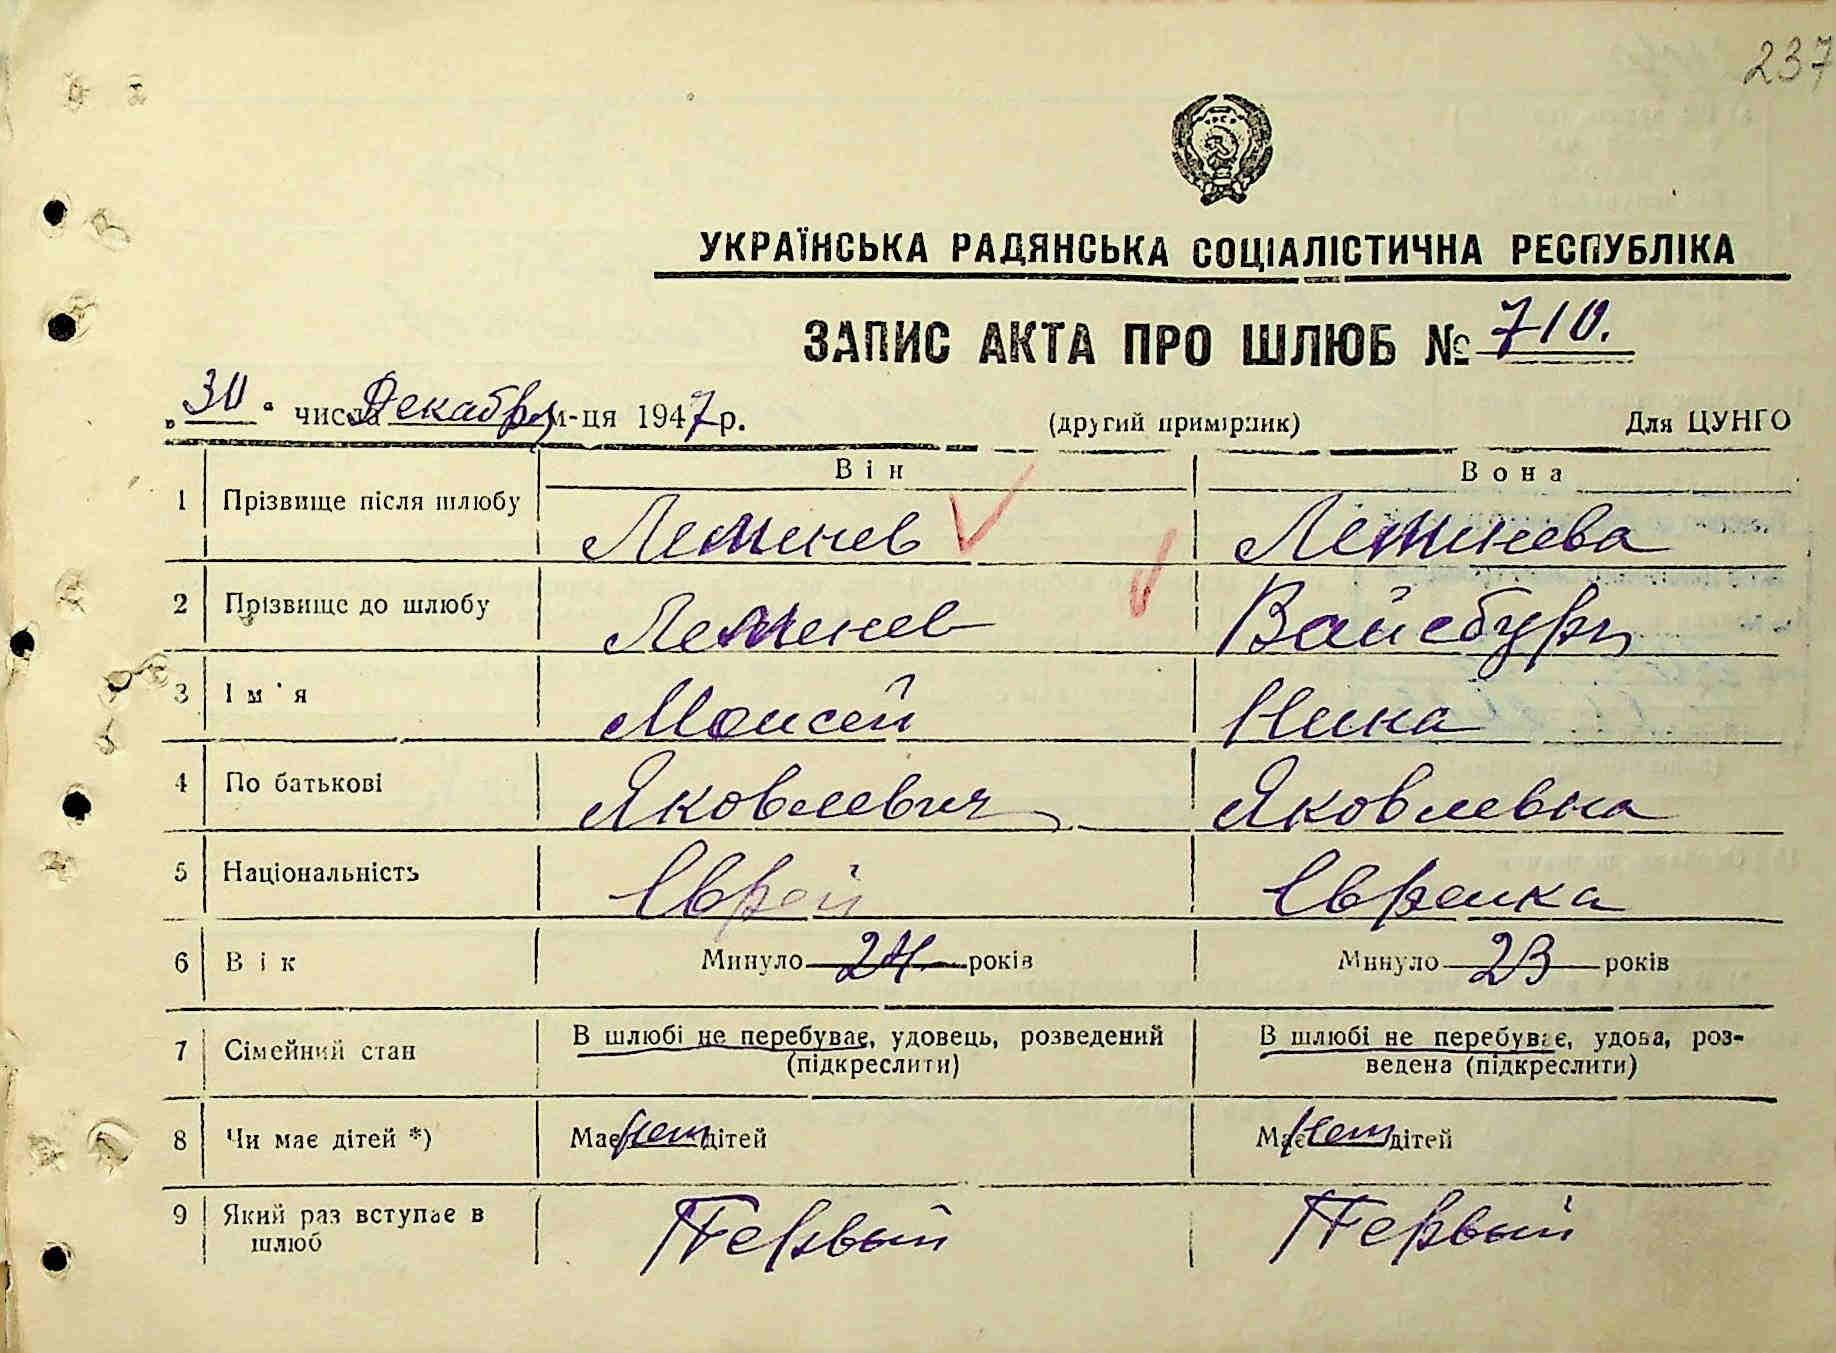 237
УКРАЇНСЬКА РАДЯНСЬКА СОЦІАЛІСТИЧНА РЕСПУБЛІКА
ЗАПИС АКТА ПРО ШЛЮБ № 710.
„30“ числа Декабря м-ця 1947 р. (другий примірник) Для ЦУНГО
Він Вона
1 Прізвище після шлюбу Леженев Леженева
2 Прізвище до шлюбу Леженев Вайсбург
3 Ім'я Моисей Нина
4 По батькові Яковлевич Яковлевна
5 Національність Еврей Еврейка
6 Вік Минуло 24 років Минуло 23 років
7 Сімейний стан В шлюбі не перебуває, удовець, розведений (підкреслити) В шлюбі не перебуває, удова, роз-
ведена (підкреслити)
8 Чи має дітей *) Має нет дітей Має нет дітей
9 Який раз вступає в шлюб Первый Первый